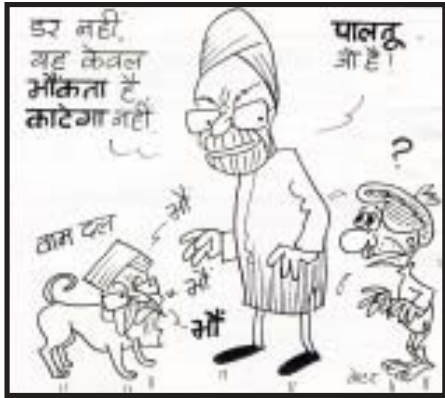 डर नहीं,
यह केवल
भौंकता है,
काटेगा नहीं
पालतू
जो है!
?
वाम दल
भौं
भौं
भौं